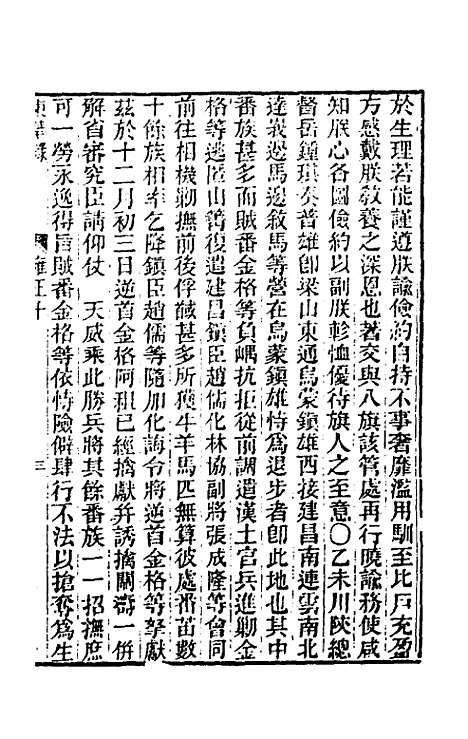 於生理若能謹遵朕諭儉約自持不事奢靡濫用馴至比戶充盈
方感戴朕教養之深恩也著交與八旗該管處再行曉諭務使咸
知朕心各圖儉約以副朕軫恤優待旗人之至意〇乙未川陝總
督岳鍾琪奏普雄卽梁山東通烏蒙鎮雄西接建昌南連雲南北
達峩邊馬邊敘馬等營在烏蒙鎮雄恃爲退步者卽此地也其中
番族甚多而賊番金格等負嵎抗拒從前調遣漢土官兵進勦金
格等逃匿山箐復遣建昌鎮臣趙儒化林協副將張成隆等會同
前往相機勦撫前後俘馘甚多所獲牛羊馬匹無算彼處番苗數
十餘族相率乞降鎮臣趙儒等隨加化誨令將逆首金格等拏獻
茲於十二月初三日逆首金格阿租已經擒獻幷誘擒關濤一倂
解省審究臣請仰仗 天威乘此勝兵將其餘番族一一招撫庶
可一勞永逸得旨賊番金格等依恃險僻肆行不法以搶奪爲生
東華錄 雍正十 三